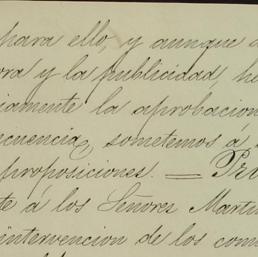 para ello, y aunque
ora y la publicidad, he
iamente la aprobacion
cuencia, sometemos á
proposiciones. — Pri
te á los Señores Martin
intervencion de los com